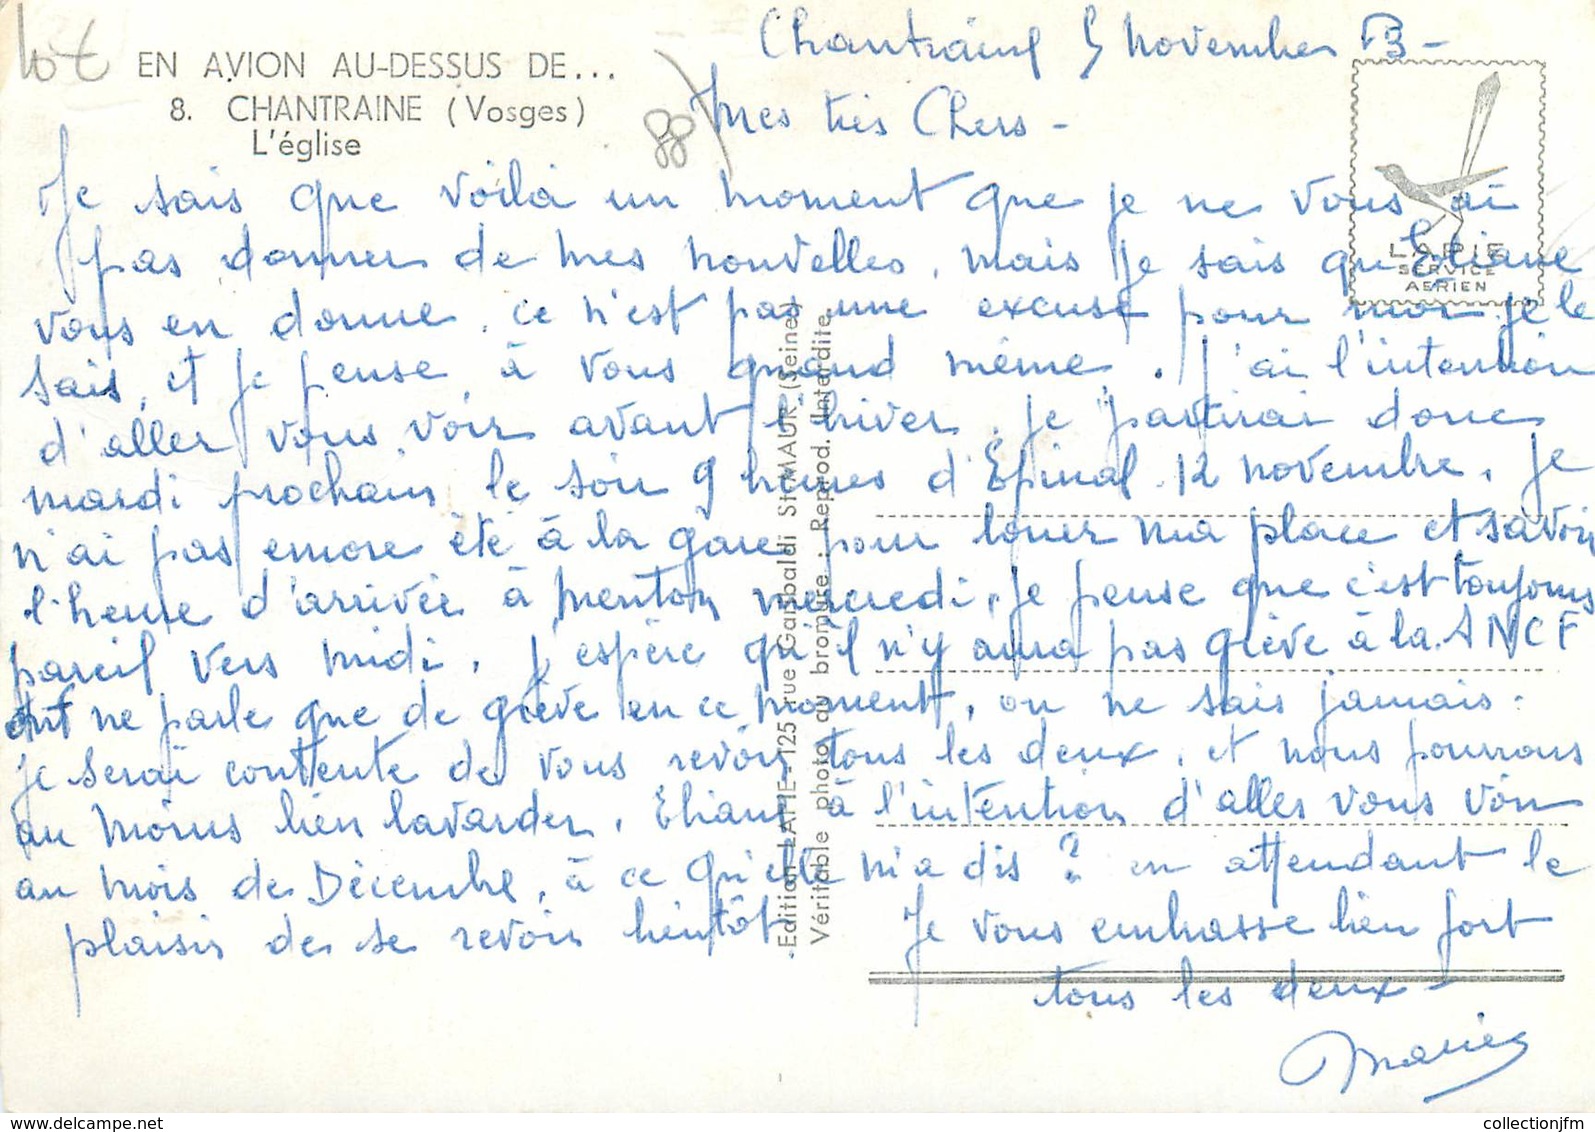 10 €
EN AVION AU-DESSUS DE...
8. CHANTRAINE (Vosges)
L'église
88
Chantraine 5 novembre 63 -
Mes très Chers -
LAPIE
SERVICE
AERIEN
Je sais que voilà un moment que je ne vous ai
pas donner de mes nouvelles, mais je sais qu'Eliane
vous en donne, ce n'est pas une excuse pour moi je le
sais, et je pense à vous quand même. J'ai l'intention
d'aller vous voir avant l'hiver, je partirai donc
mardi prochain le soir 9 heures d'Epinal 12 novembre. Je
n'ai pas encore été à la gare pour louer ma place et savoir
l'heure d'arrivée à Menton mercredi, je pense que c'est toujours
pareil vers midi, j'espère qu'il n'y aura pas grève à la SNCF
ont ne parle que de grève en ce moment, on ne sais jamais :
je serai contente de vous revoir tous les deux, et nous pourrons
au moins bien bavarder, Eliane à l'intention d'aller vous voir
au mois de Décembre, à ce qu'elle m'a dis ? en attendant le
plaisir de se revoir bientôt Je vous embrasse bien fort
tous les deux -
Marie
Edition LAPIE - 125, rue Garibaldi St-MAUR (Seine)
Véritable photo au bromure - Reprod. Interdite.
collectionjfm